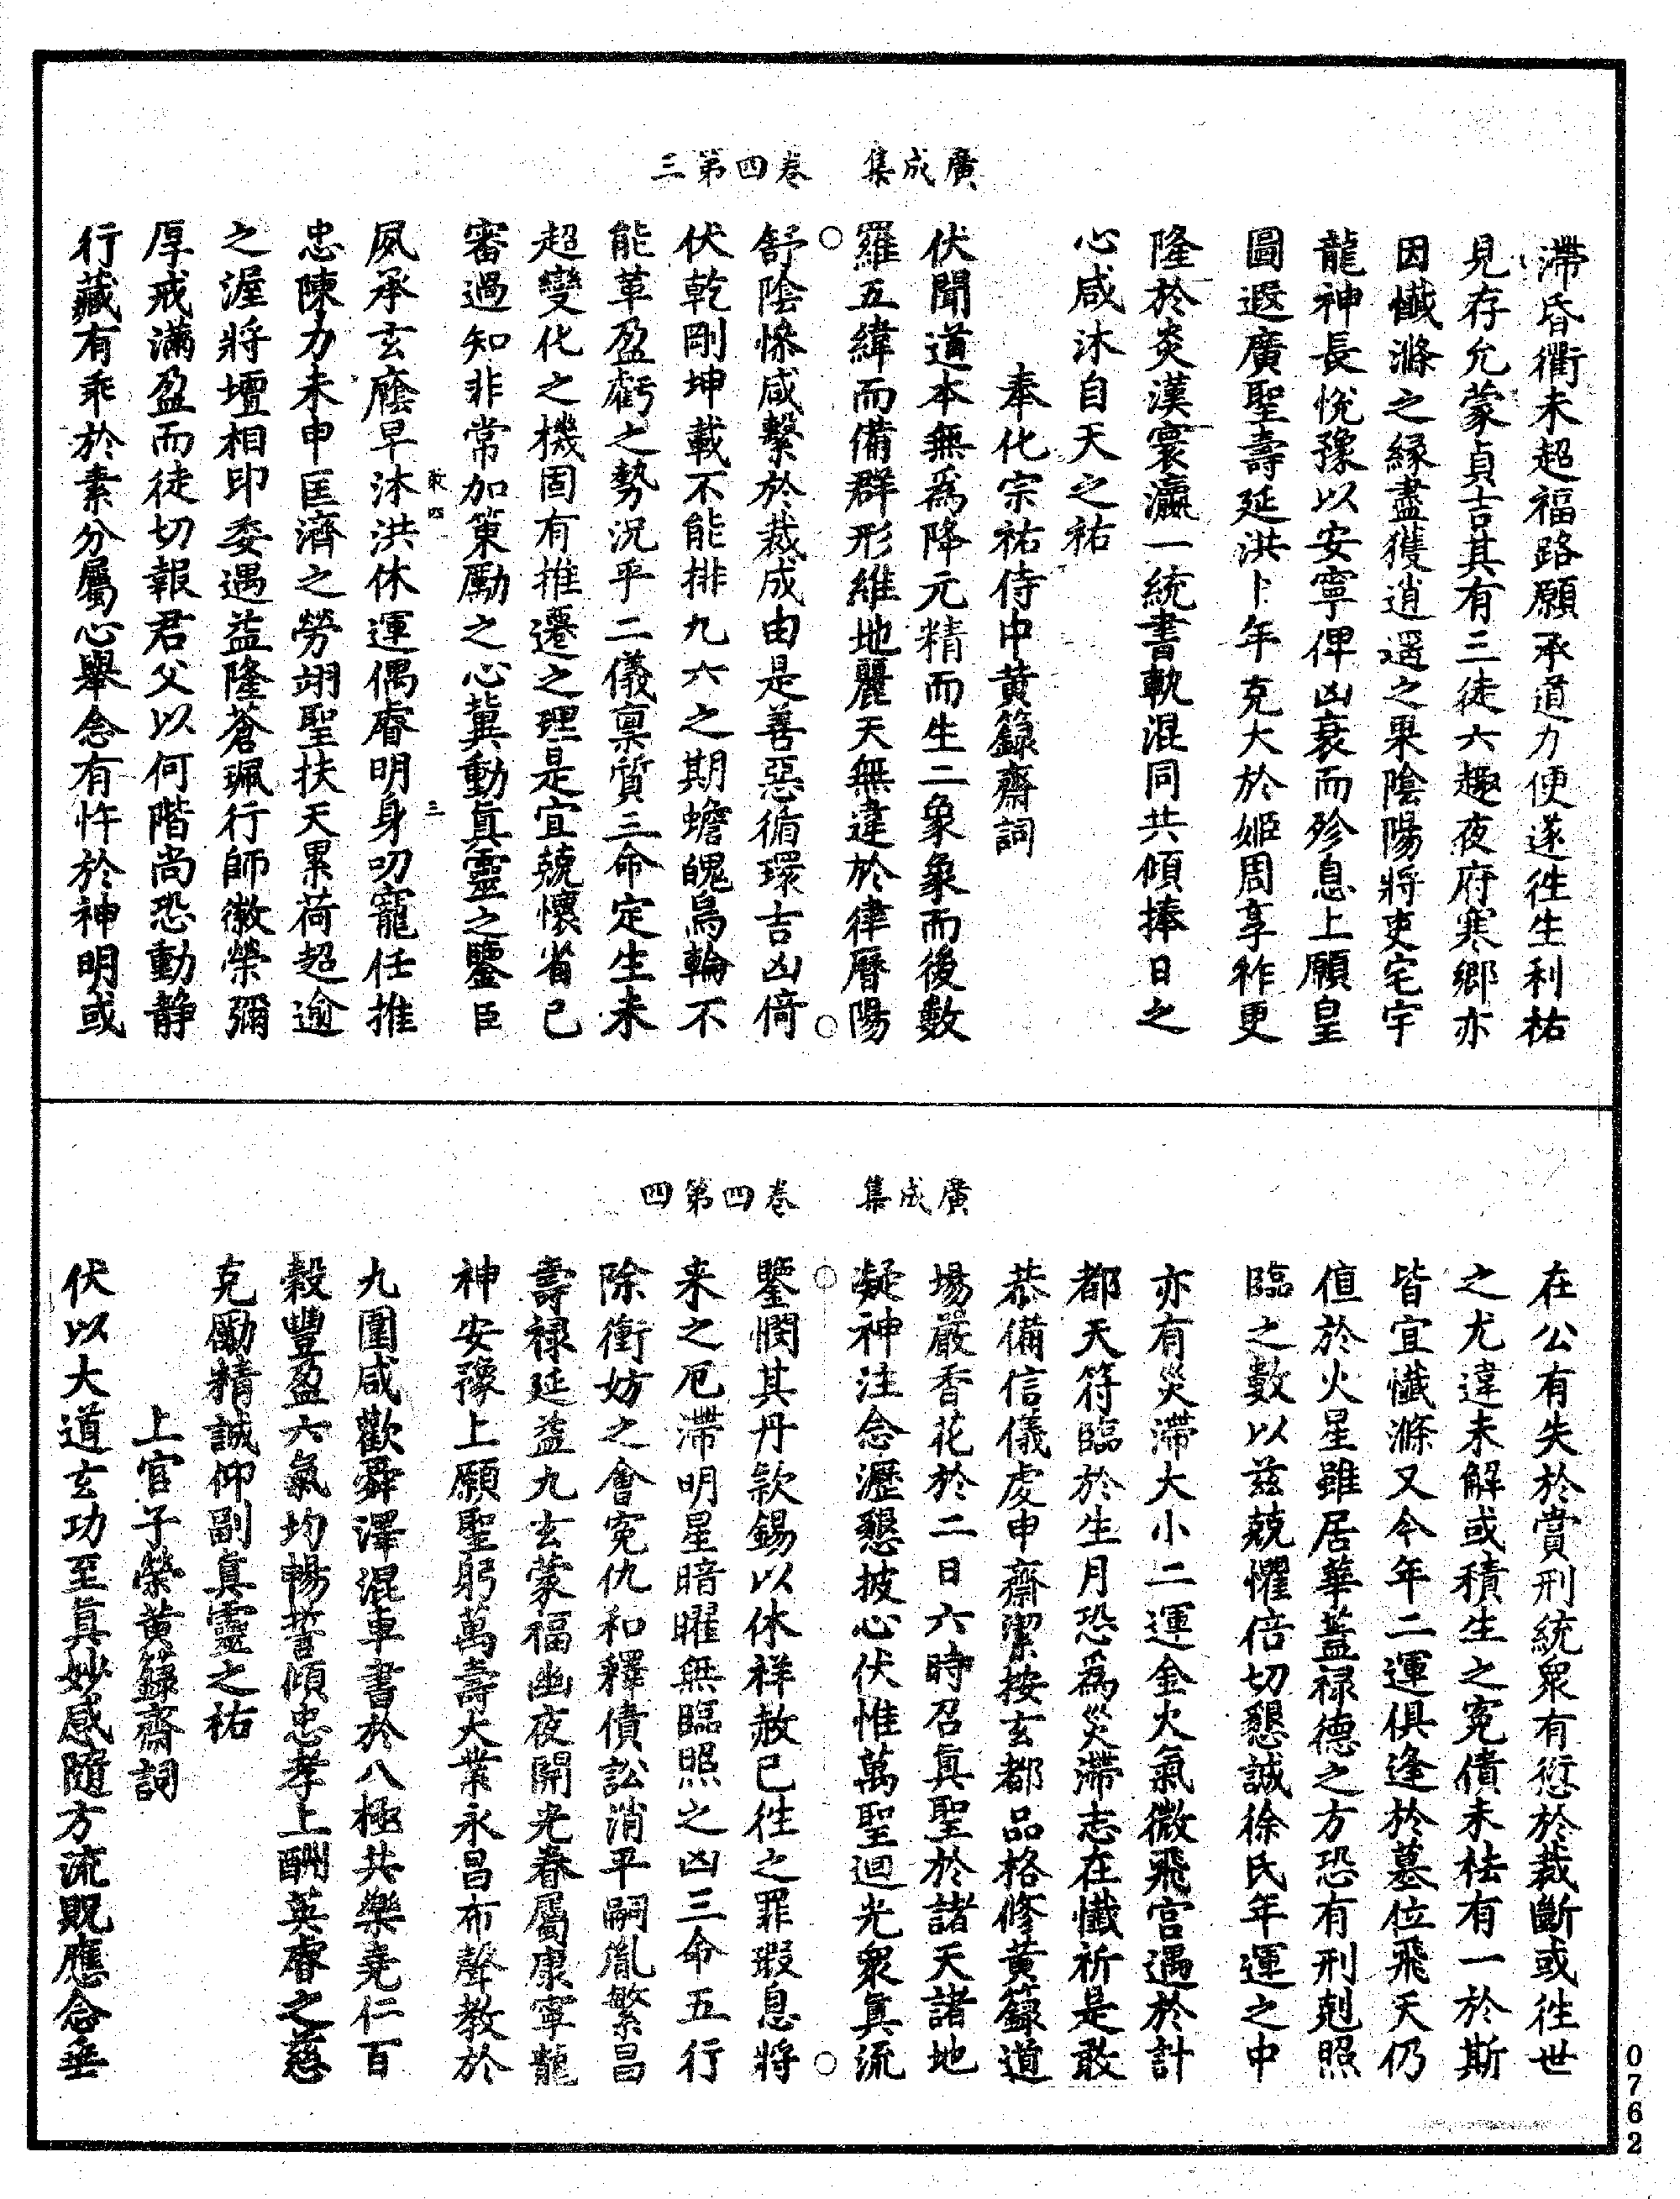 廣成集　卷四第三
滯昏衢未超福路願承道力便遂徃生利祐
見存允蒙貞吉其有三徒六趣夜府寒鄉亦
因懺滌之縁盡獲逍遥之果陰陽將吏宅宇
龍神長悅豫以安寧俾凶衰而殄息上願皇
圖遐廣聖壽延洪卜年克大於姬周享祚更
隆於炎漢寰瀛一統書軌混同共傾捧日之
心咸沐自天之祐
奉化宗祐侍中黄籙齋詞
伏聞道本無爲降元精而生二象象而後數
羅五緯而備群形維地麗天無違於律曆陽
舒陰慘咸繫於裁成由是善惡循環吉凶倚
伏乾剛坤載不能排九六之期蟾魄烏輪不
能革盈虧之勢況乎二儀禀質三命定生未
超變化之機固有推遷之理是宜兢懷省己
審過知非常加策勵之心冀動真靈之鑒臣
夙承玄廕早沐洪休運偶睿明身叨寵任推
忠陳力未申匡濟之勞翊聖扶天累荷超逾
之渥將壇相印委遇益隆蒼珮行師徽榮彌
厚戒滿盈而徒切報君父以何階尚恐動静
行藏有乖於素分屬心舉念有忤於神明或
三
廣成集　卷四第四
在公有失於賞刑統衆有愆於裁斷或徃世
之尤違未解或積生之寃債未袪有一於斯
皆宜懺滌又今年二運俱逢於墓位飛天仍
值於火星雖居華蓋禄德之方恐有刑剋照
臨之數以兹兢懼倍切懇誠徐氏年運之中
亦有災滯大小二運金火氣微飛宫遇於計
都天符臨於生月恐爲災滯志在懺祈是敢
恭備信儀虔申齋潔按玄都品格修黄籙道
場嚴香花於二日六時召真聖於諸天諸地
凝神注念瀝懇披心伏惟萬聖迴光衆真流
鑒憫其丹款錫以休祥赦已徃之罪瑕息將
来之厄滯明星暗曜無臨照之凶三命五行
除衝妨之會寃仇和釋債訟消平嗣胤繁昌
壽禄延益九玄蒙福幽夜開光眷屬康寧龍
神安豫上願聖躬萬壽大業永昌布聲教於
九圍咸歡舜澤混車書於八極共樂堯仁百
榖豐盈六氣均暢誓傾忠孝上酬英睿之慈
克勵精誠仰副真靈之祐
上官子榮黄籙齋詞
伏以大道玄功至真妙感隨方流貺應念垂
0762